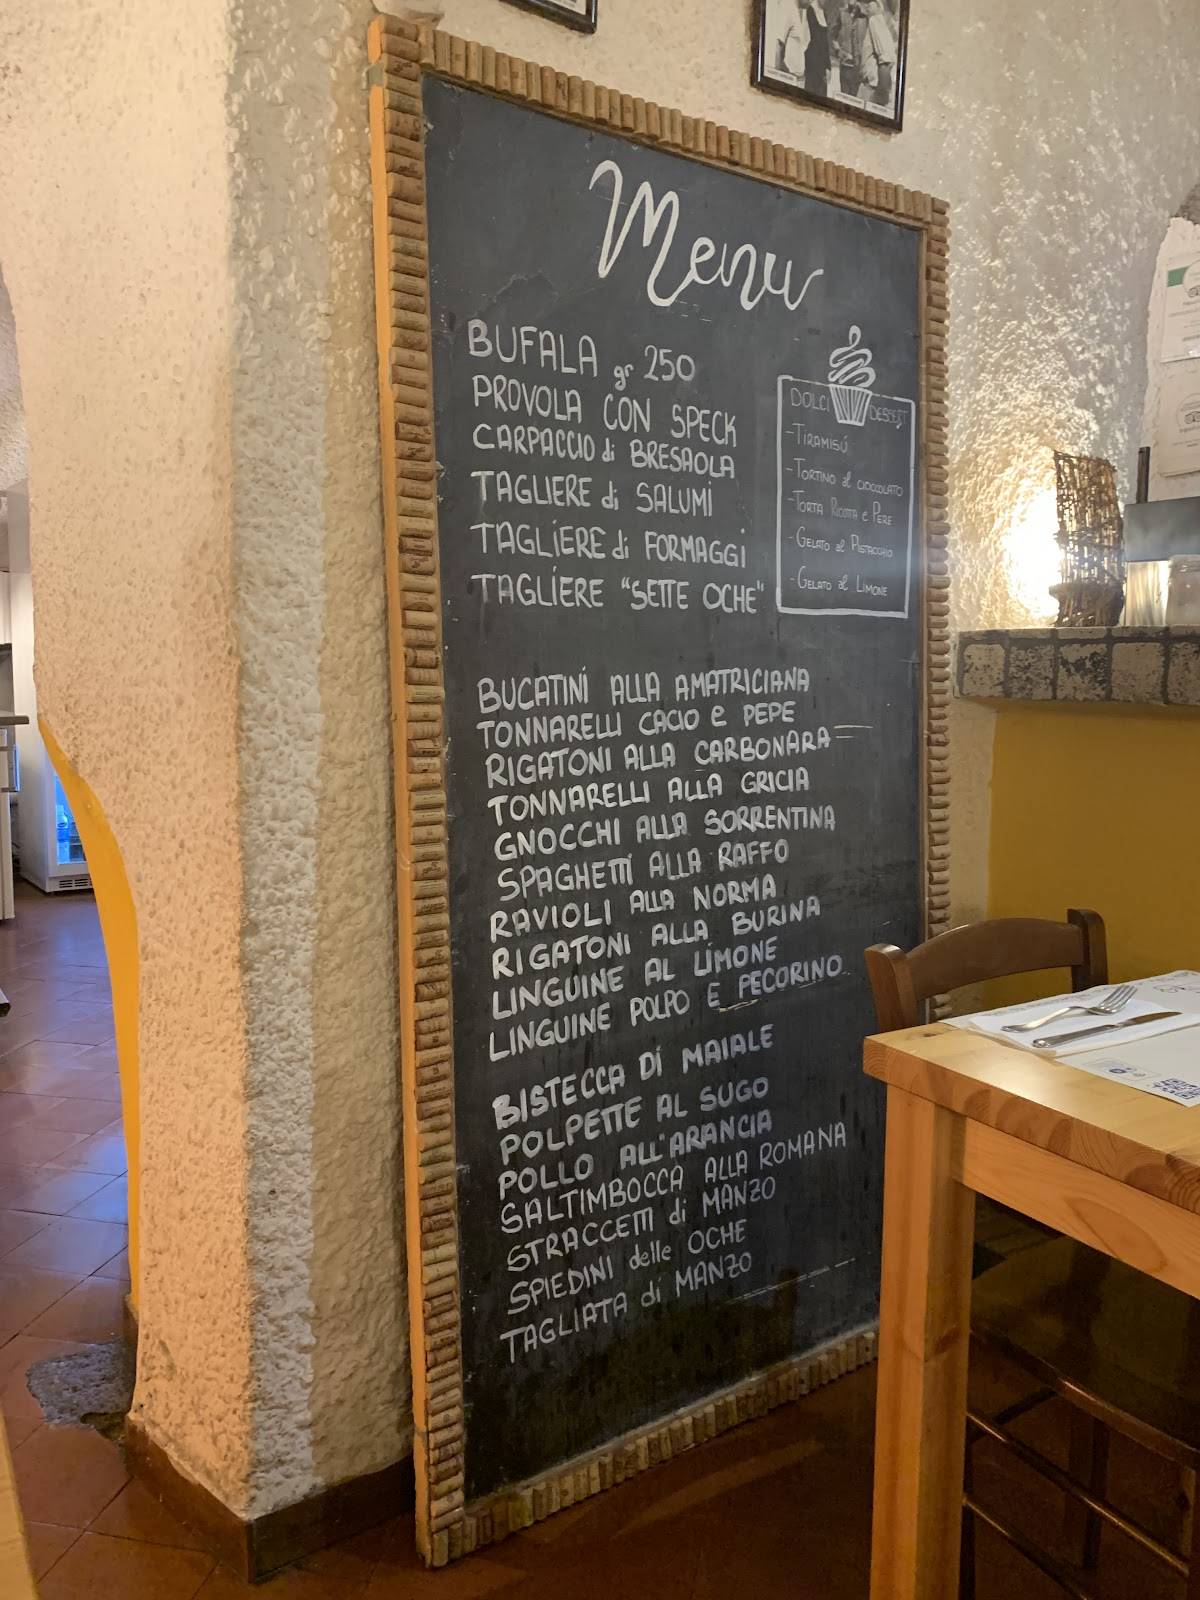 Menu
BUFALA gr 250
PROVOLA CON SPECK
CARPACCIO di BRESAOLA
TAGLIERE di SALUMI
TAGLIERE di FORMAGGI
TAGLIERE "SETTE OCHE"
DOLCI DESSERT
-TIRAMISÚ
-TORTINO al CIOCCOLATO
-TORTA RICOTTA e PERE
-GELATO al PISTACCHIO
-GELATO al LIMONE
BUCATINI ALLA AMATRICIANA
TONNARELLI CACIO e PEPE
RIGATONI ALLA CARBONARA
TONNARELLI ALLA GRICIA
GNOCCHI ALLA SORRENTINA
SPAGHETTI ALLA RAFFO
RAVIOLI ALLA NORMA
RIGATONI ALLA BURINA
LINGUINE AL LIMONE
LINGUINE POLPO E PECORINO
BISTECCA DI MAIALE
POLPETTE AL SUGO
POLLO ALL'ARANCIA
SALTIMBOCCA ALLA ROMANA
STRACCETTI di MANZO
SPIEDINI delle OCHE
TAGLIATA di MANZO